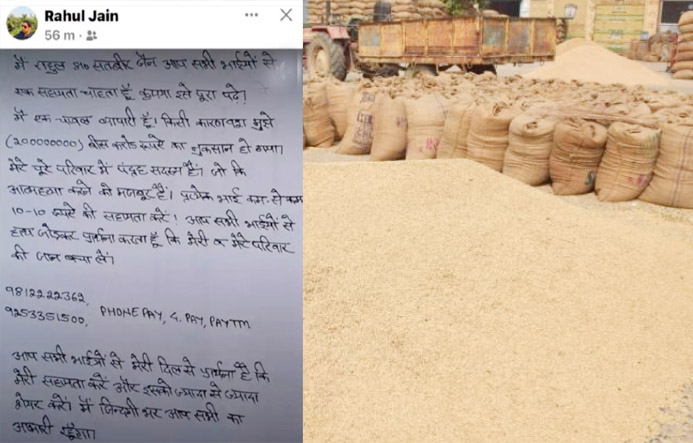 Rahul Jain
56 m
मैं राहुल S/o सतबीर जैन आप सभी भाईयों से
एक सहायता चाहता हूँ कृपया इसे पूरा पढ़े?
मैं एक चावल व्यापारी हूँ। किसी कारणवश मुझे
(200000000) बीस करोड़ रूपये का नुकसान हो गया।
मेरे पूरे परिवार में पंद्रह सदस्य हैं। जो कि
आत्महत्या करने को मजबूर हैं। प्रत्येक भाई कम-से-कम
10-10 रूपये की सहायता करें! आप सभी भाईयों से
हाथ जोड़कर प्रार्थना करता हूँ कि मेरी व मेरे परिवार
की जान बचा लें।
9812222362,
9253351500, PHONE PAY, G. PAY, PAYTM
आप सभी भाईयों से मेरी दिल से प्रार्थना है कि
मेरी सहायता करें और इसको ज्यादा से ज्यादा
शेयर करें। मैं जिन्दगी भर आप सभी का
आभारी रहूँगा।